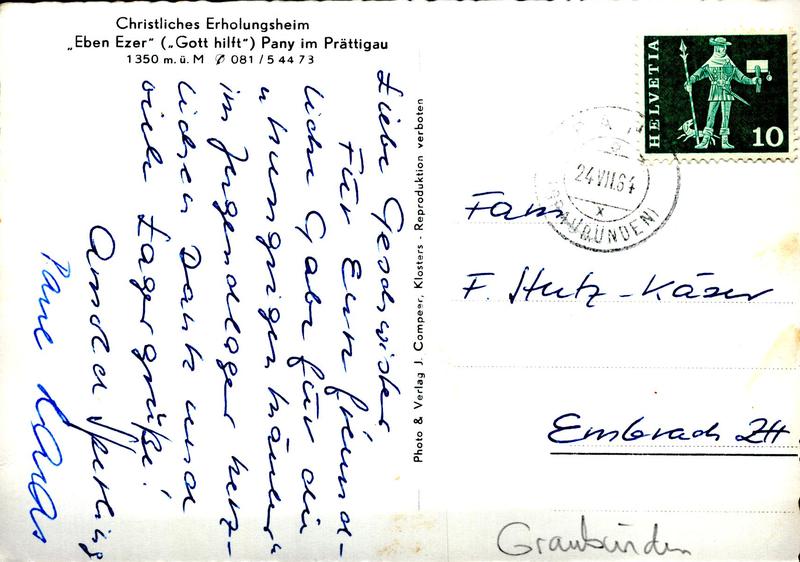 Christliches Erholungsheim
„Eben Ezer“ („Gott hilft“) Pany im Prättigau
1350 m. ü. M ✆ 081 / 5 44 73
Liebe Geschwister
Für Eure freund-
liche Gabe für die
"hungrigen Mäuler"
im Jugendlager herz-
lichen Dank und
viele Lagergrüße!
Arnold Sperling
Photo & Verlag J. Compeer, Klosters - Reproduktion verboten
HELVETIA
10
24.VII.64
(GRAUBÜNDEN)
Fam
F. Hutz-Käser
Embrach ZH
Graubünden